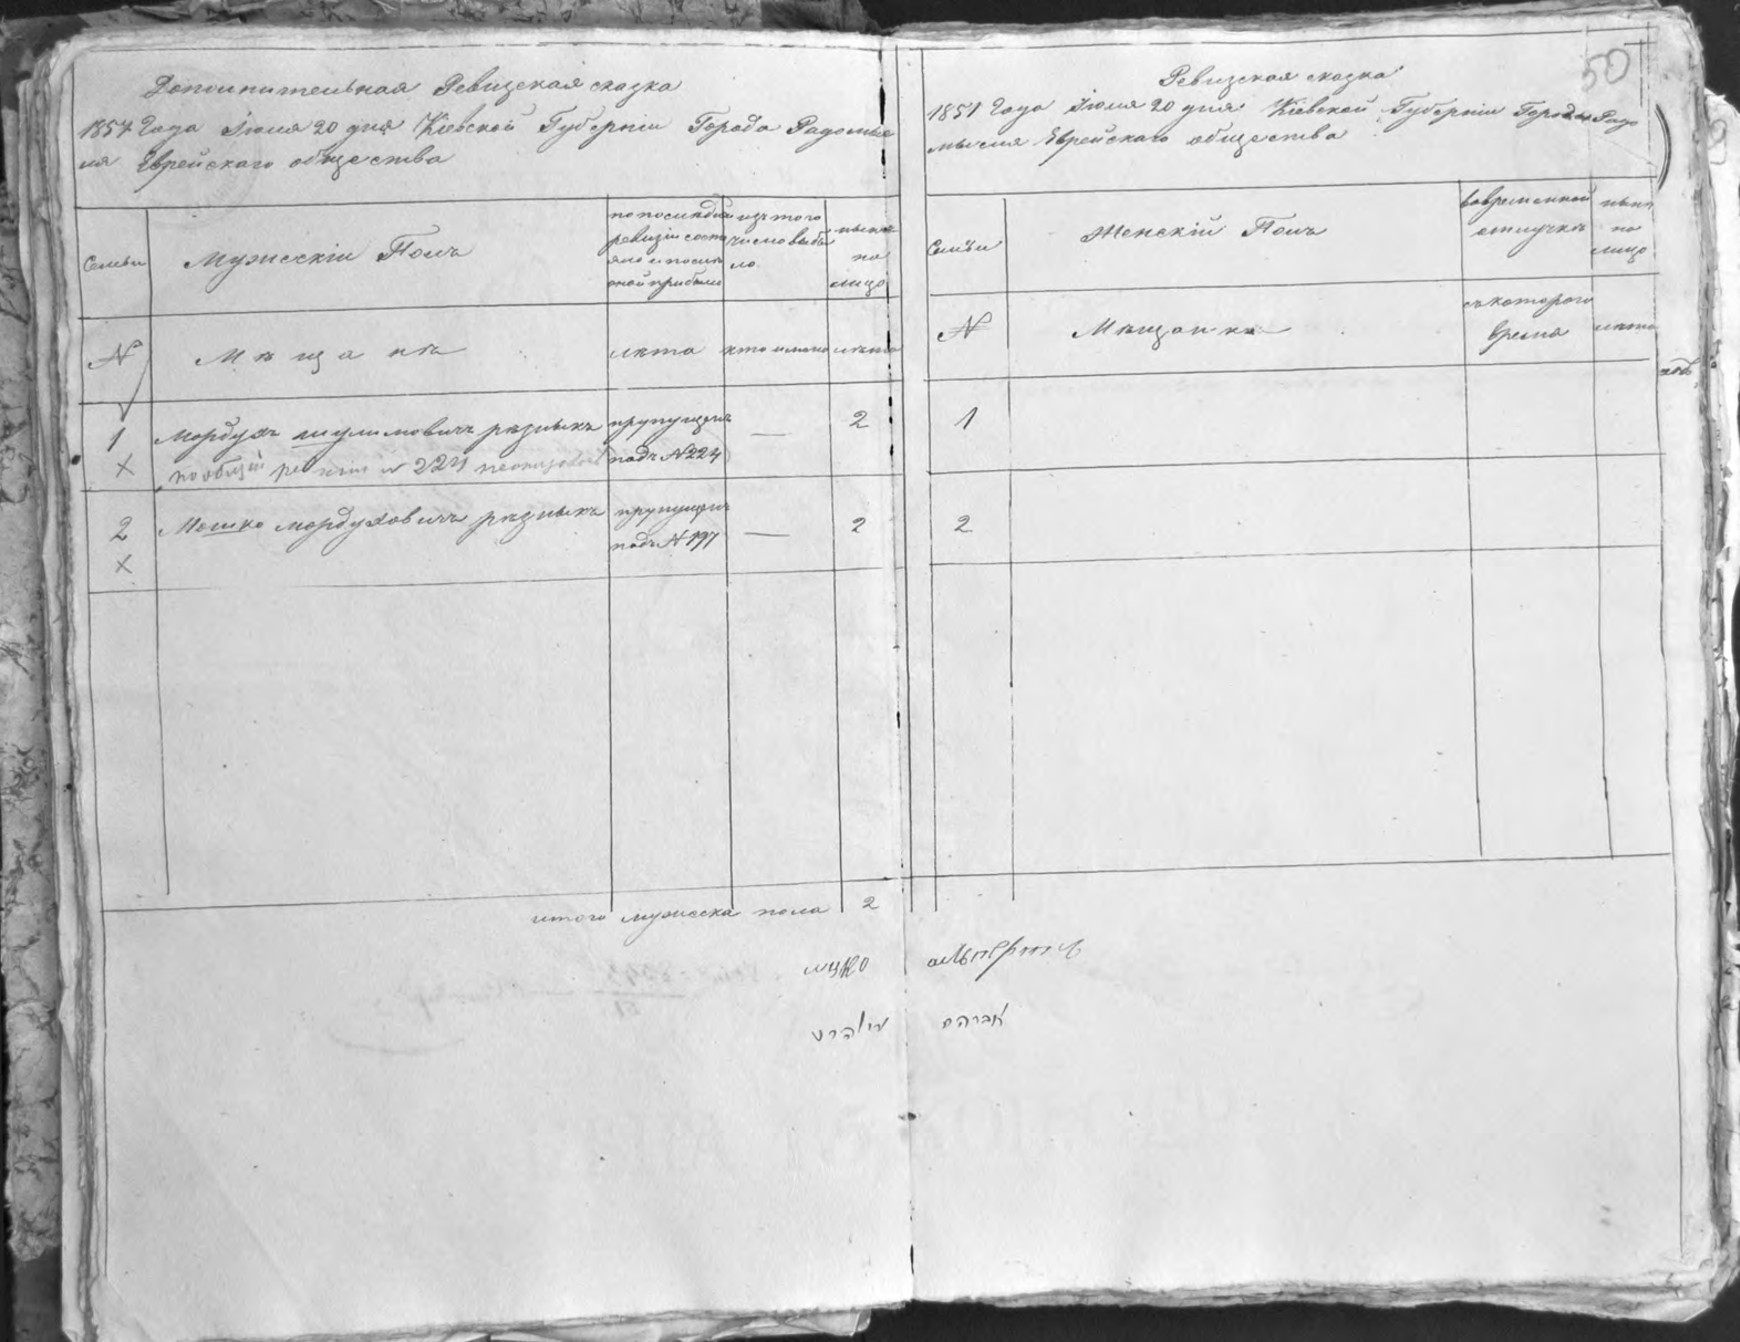 Дополнительная Ревизская сказка
1857 Года Іюля 20 дня Кіевской Губерніи Города Радомыс
ля Еврейскаго общества
Семьи
Мужескій Полъ
по последн
ревизіи состо
яло и после
оной прибыло
изъ того
число выбы
ло
ныне
на
лицо
N
Мѣщане
лѣта
кто имено
лѣта
1
Мордухъ шулимовичъ рѣзныкъ
прупущенъ
подъ N 224
—
2
X
N 224
2
Мошко мордуховичъ рѣзныкъ
прупущенъ
подъ N 197
—
2
X
итого мужеска пола 2
50
Ревизская сказка
1857 Года Іюля 20 дня Кіевской Губерніи Города Радо
мысля Еврейскаго общества
Семьи
Женскій Полъ
вовременной
отлучкѣ
ныне
на
лицо
N
Мѣщанки
съ которого
время
лѣта
1
2
אברהם